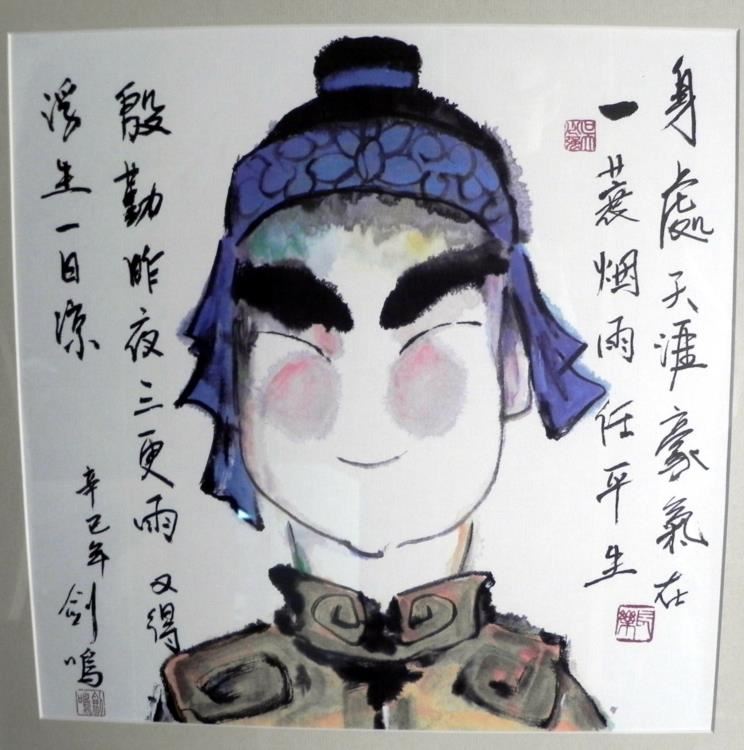 身處天涯豪氣在
一蓑烟雨任平生
殷勤昨夜三更雨 又得
浮生一日涼
辛巳年 剑鳴